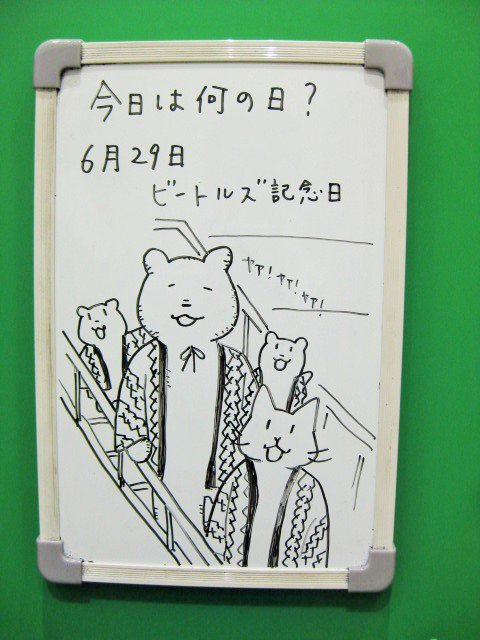 今日は何の日?
6月29日
ビートルズ記念日
ヤア!ヤア!ヤア!